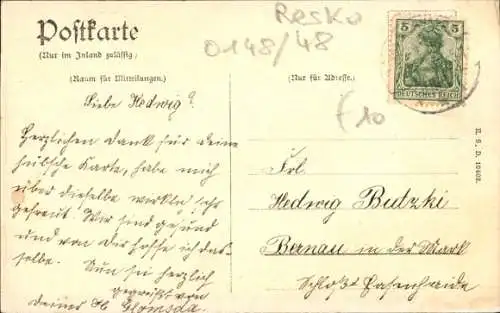 Postkarte
(Nur im Inland zulässig.)
(Raum für Mitteilungen.)
(Nur für Adresse.)
Resko
0148/48
5 5
DEUTSCHES REICH
10
R. S. D. 10403.
Liebe Hedwig!
Herzlichen Dank für deine
hübsche Karte, habe mich
über dieselbe wirklich sehr
gefreut. Wir sind gesund
und von Dir hoffe ich das-
selbe. Nun sei herzlich
gegrüßt von
deiner Glomsda.
Frl.
Hedwig Butzki
Bernau in der Mark
Schloß